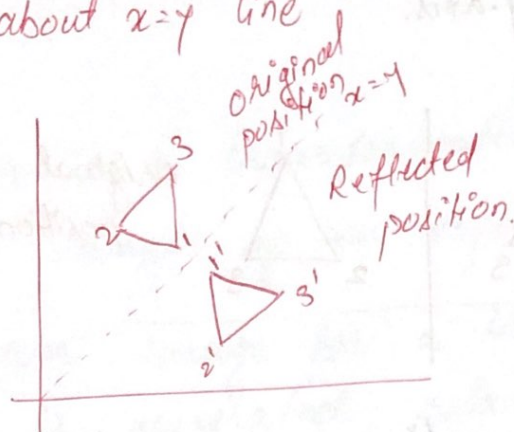 about x=y line
original
position
x=y
Reflected
position.
3
2
1
1'
3'
2'